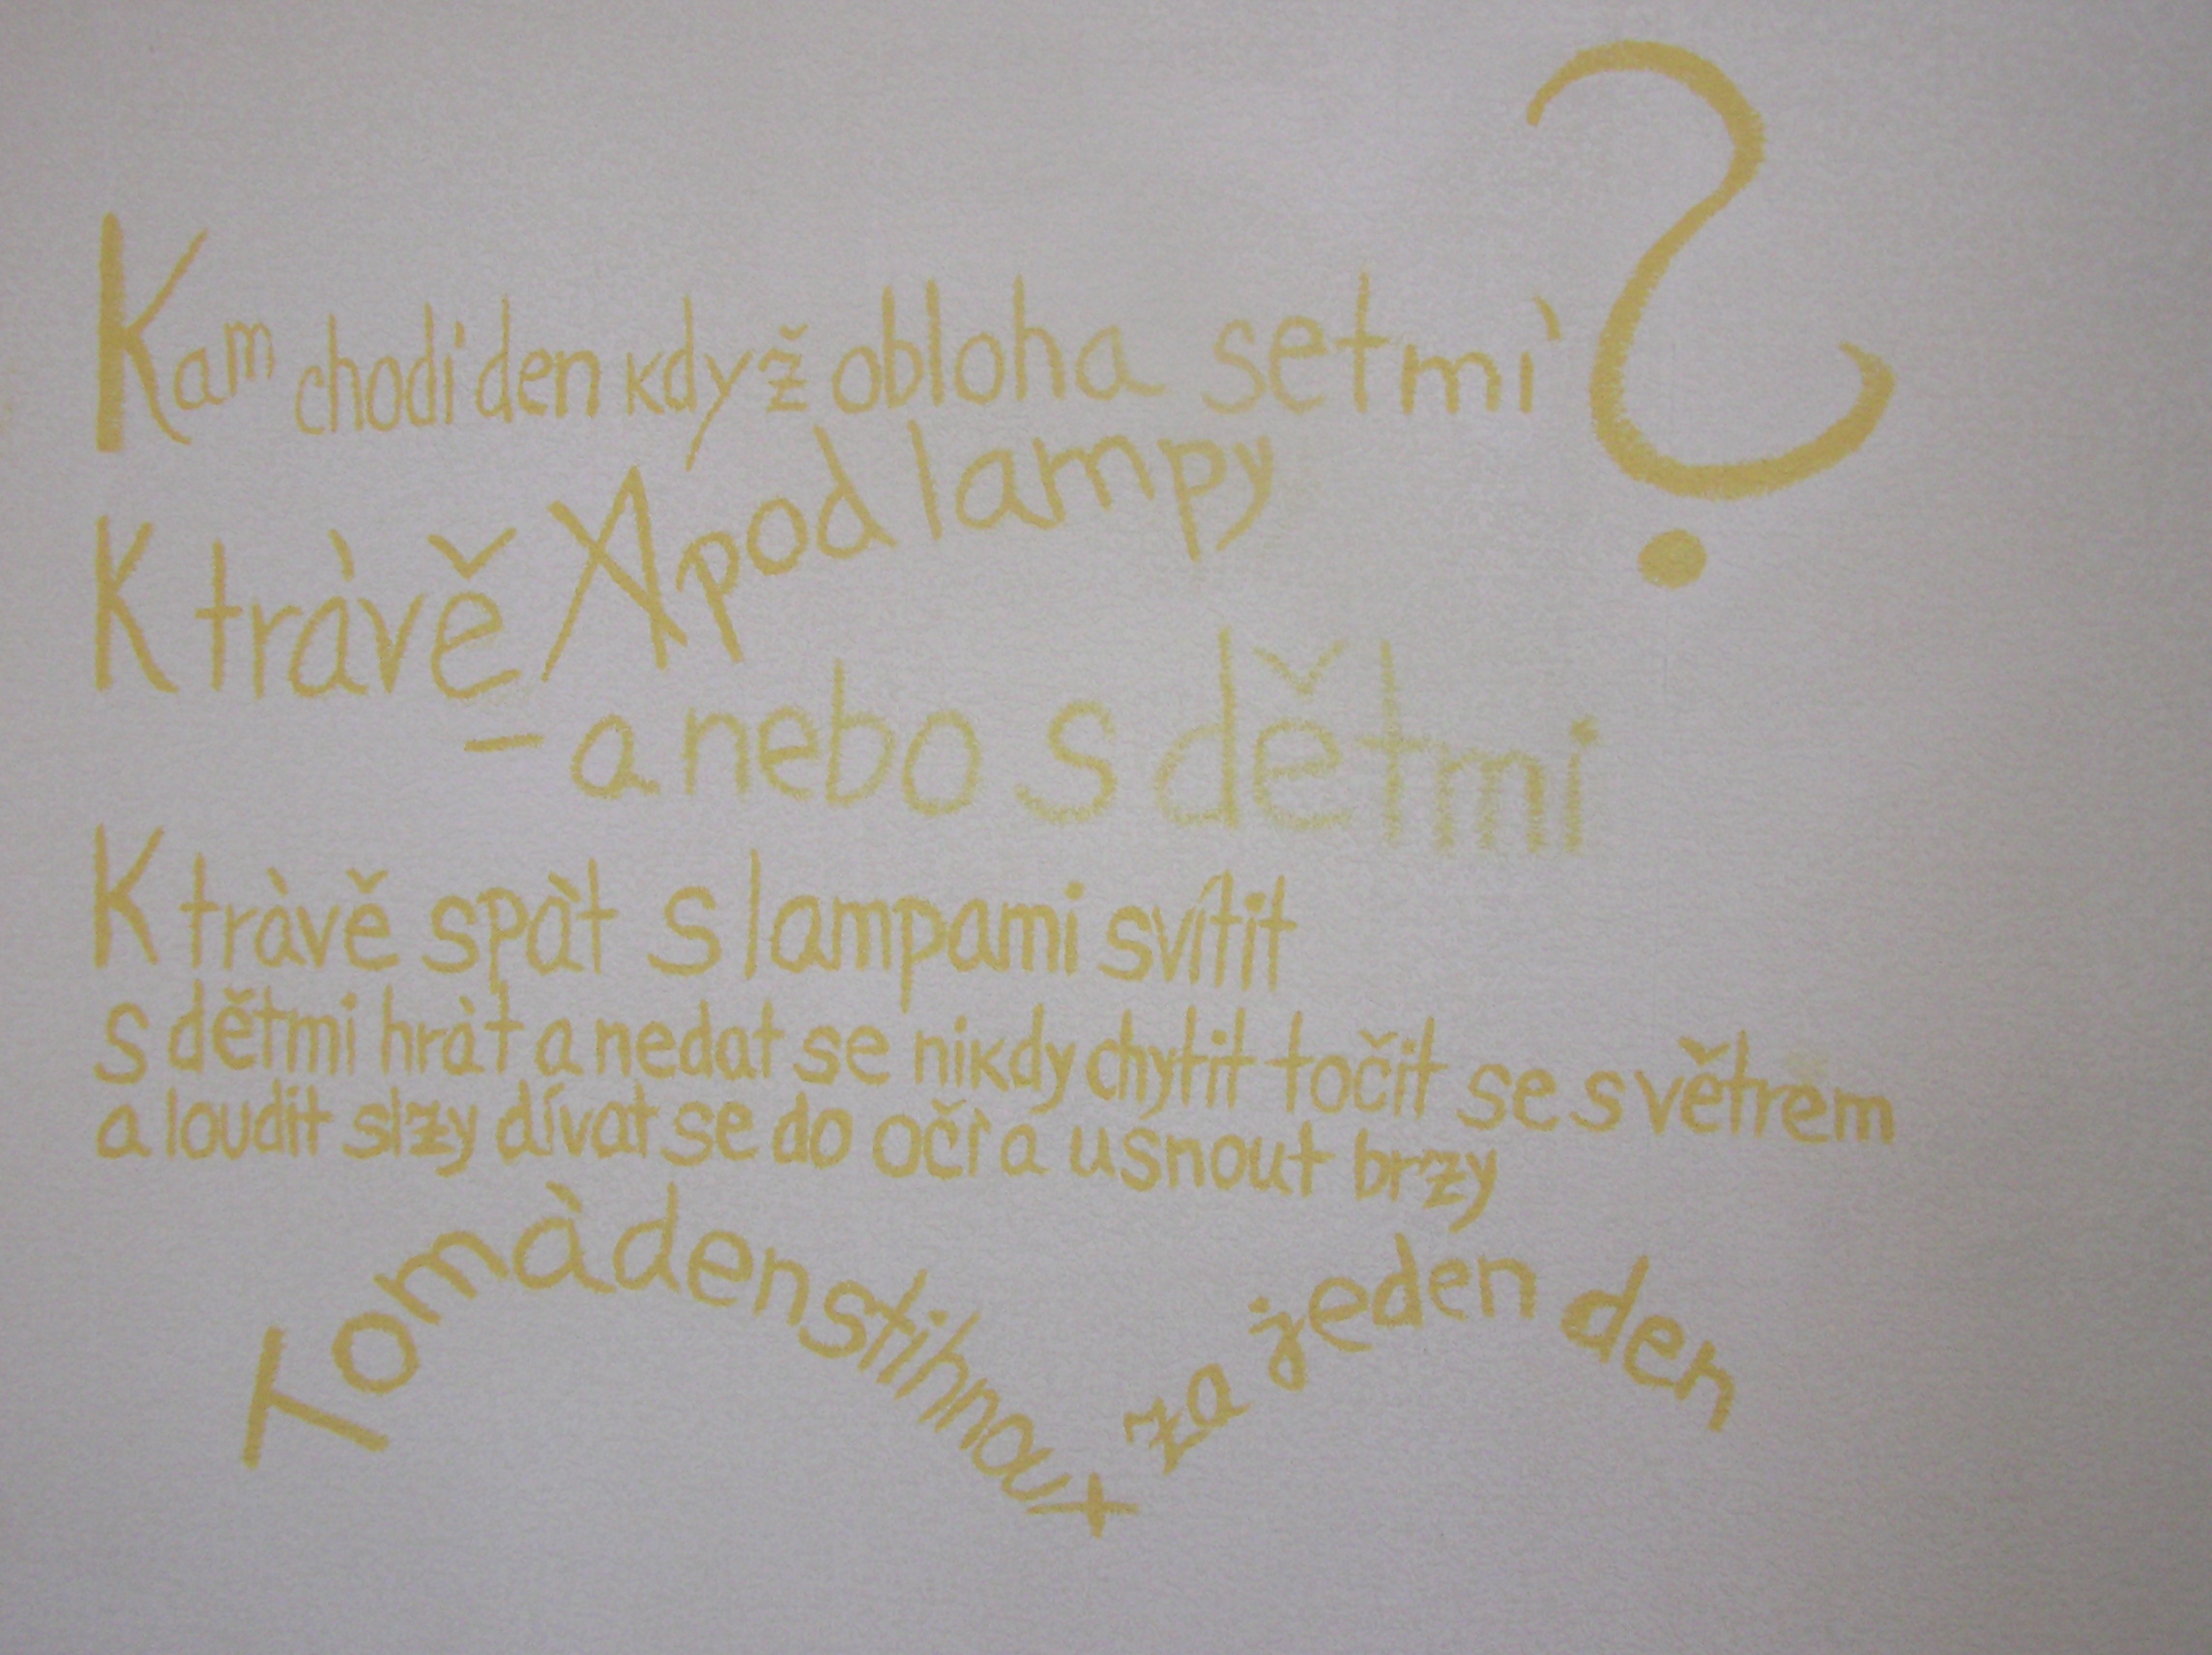 Kam chodí den když obloha setmí?
K trávě A pod lampy
- a nebo s dětmi
K trávě spát s lampami svítit
s dětmi hrát a nedat se nikdy chytit točit se s větrem
a loudit slzy dívat se do očí a usnout brzy
To má den stihnout za jeden den